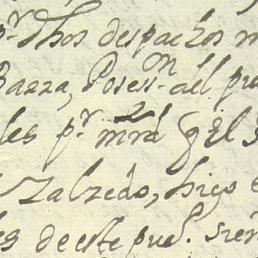 pʳ dhos despachos m
Bazza, Posesⁿ del pu
les pʳ mrd q El S
Zalzedo, hizo e
es de este pueˡ. sien